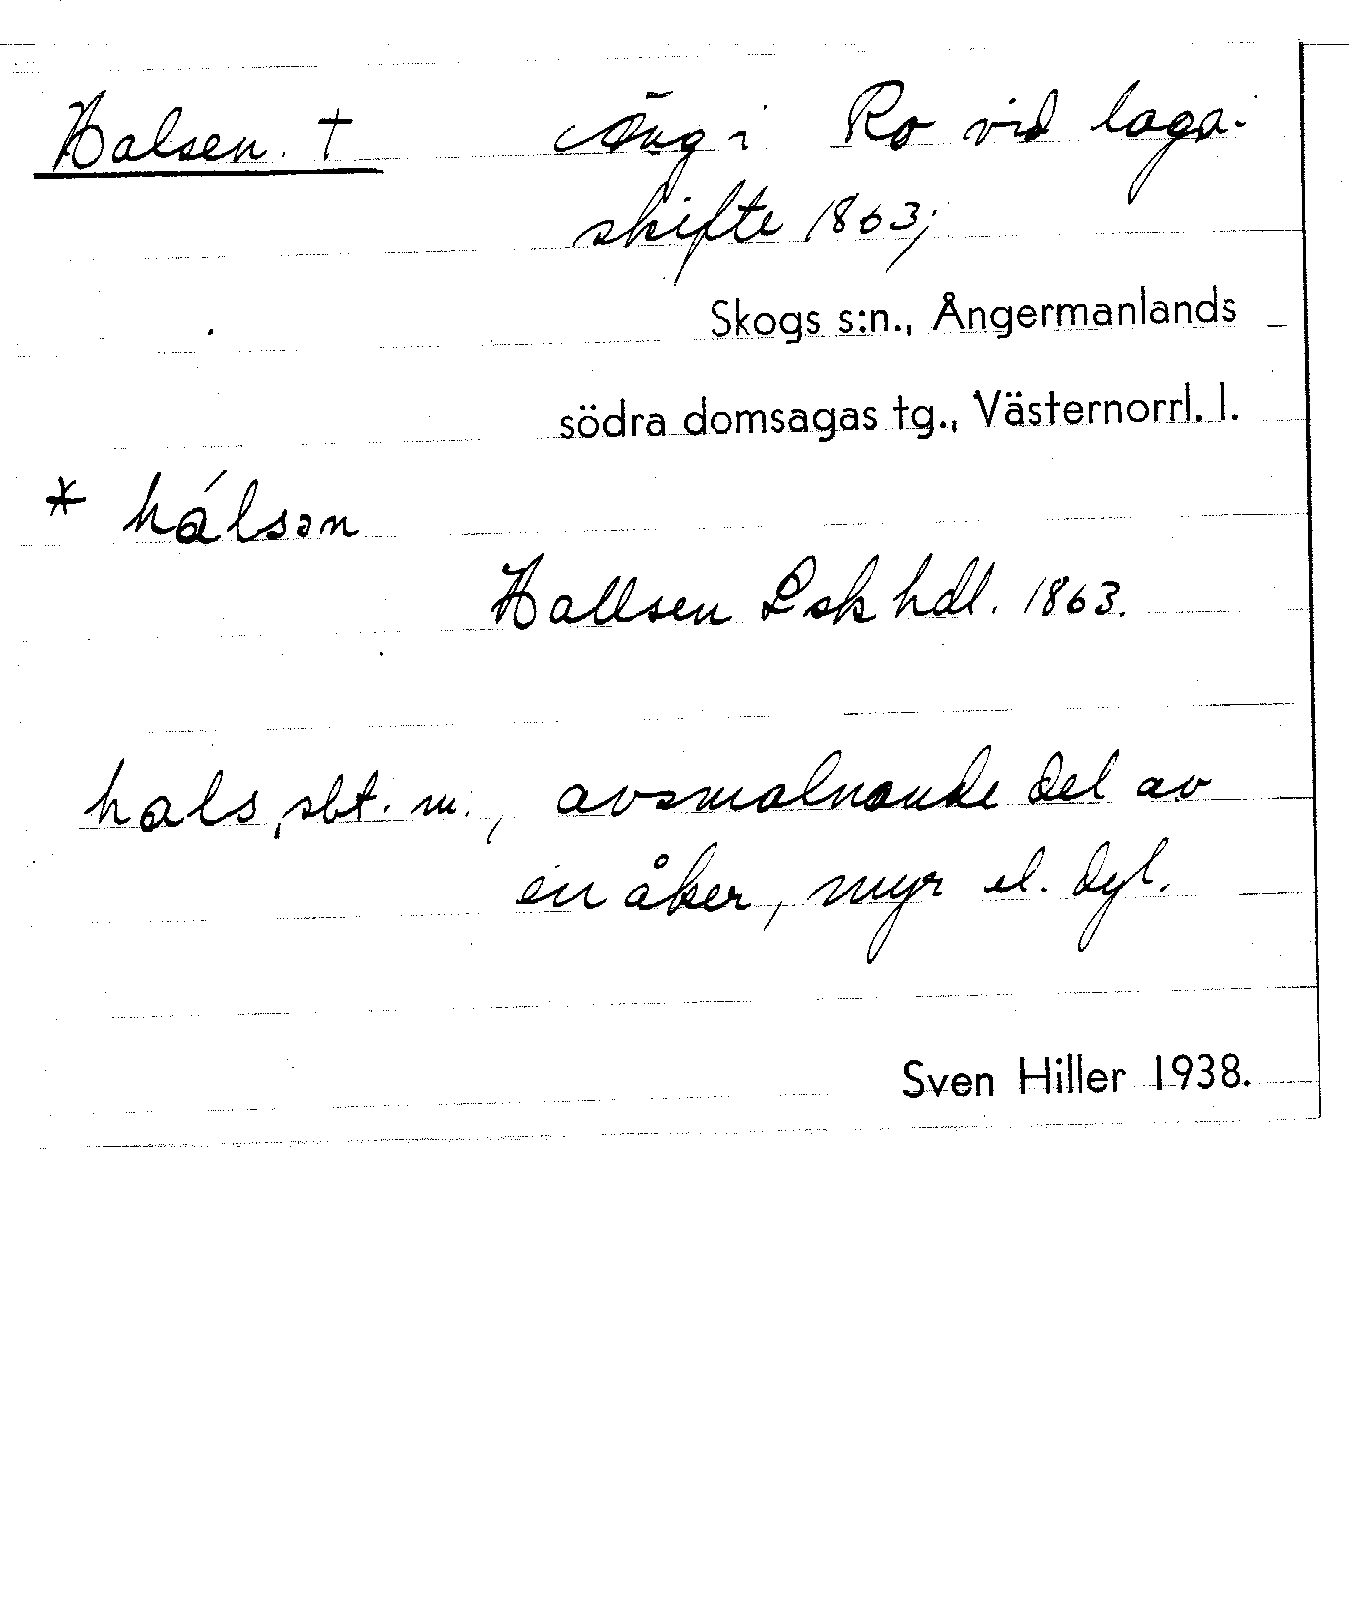 Halsen. † Äng i Ro vid laga-
skifte 1863;
Skogs s:n., Ångermanlands
södra domsagas tg., Västernorrl. l.
* hálsən
Hallsen Lsk hdl. 1863.
hals, sbt. m., avsmalnande del av
en åker, myr el. dyl.
Sven Hiller 1938.